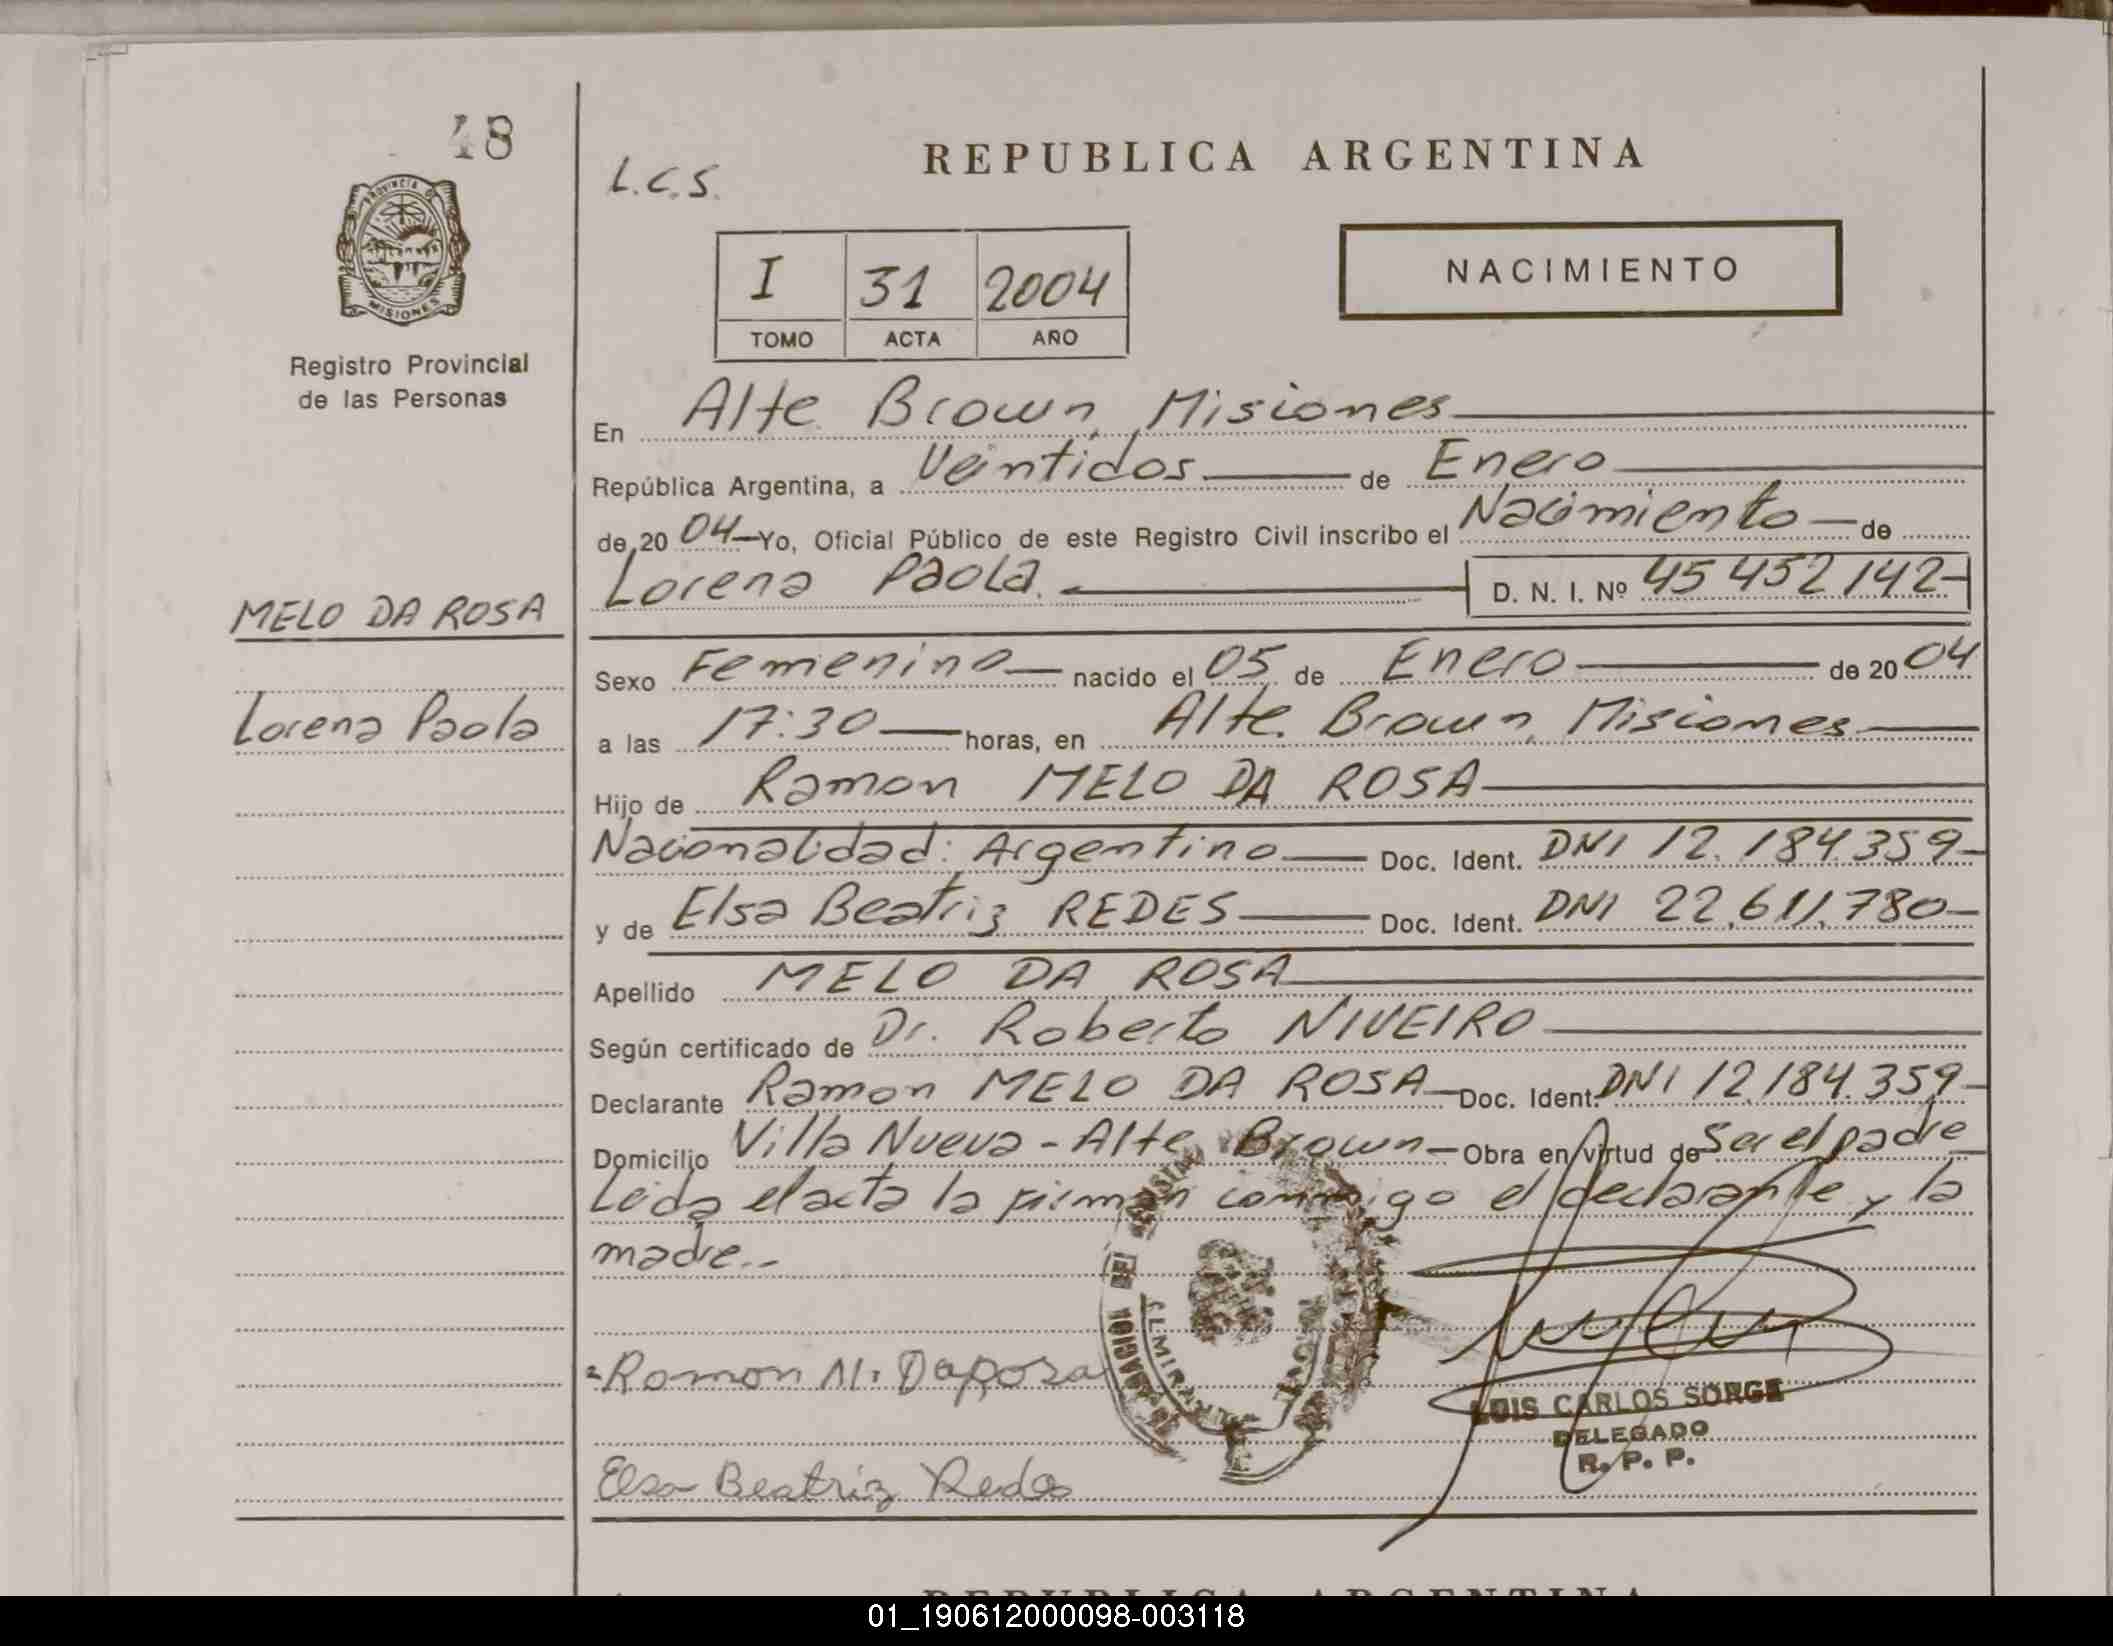 48
PROVINCIA DE
MISIONES
Registro Provincial
de las Personas
MELO DA ROSA
Lorena Paola
L.C.S.
REPUBLICA ARGENTINA
I 31 2004
TOMO ACTA AÑO
NACIMIENTO
En Alte Brown, Misiones
República Argentina, a Veintidos de Enero
de 20 04 Yo, Oficial Público de este Registro Civil inscribo el Nacimiento de
Lorena Paola. D. N. I. Nº 45 452 142
Sexo Femenino nacido el 05 de Enero de 20 04
a las 17:30 horas, en Alte. Brown, Misiones
Hijo de Ramon MELO DA ROSA
Nacionalidad: Argentino Doc. Ident. DNI 12.184.359
y de Elsa Beatriz REDES Doc. Ident. DNI 22.611.780
Apellido MELO DA ROSA
Según certificado de Dr. Roberto NIVEIRO
Declarante Ramon MELO DA ROSA Doc. Ident. DNI 12.184.359
Domicilio Villa Nueva - Alte Brown Obra en virtud de Ser el padre
Leida el acta la firman conmigo el declarante y la
madre.-
Ramon M. Darosa
Elsa Beatriz Redes
LUIS CARLOS SORGE
DELEGADO
R. P. P.
REPUBLICA ARGENTINA
01_190612000098-003118